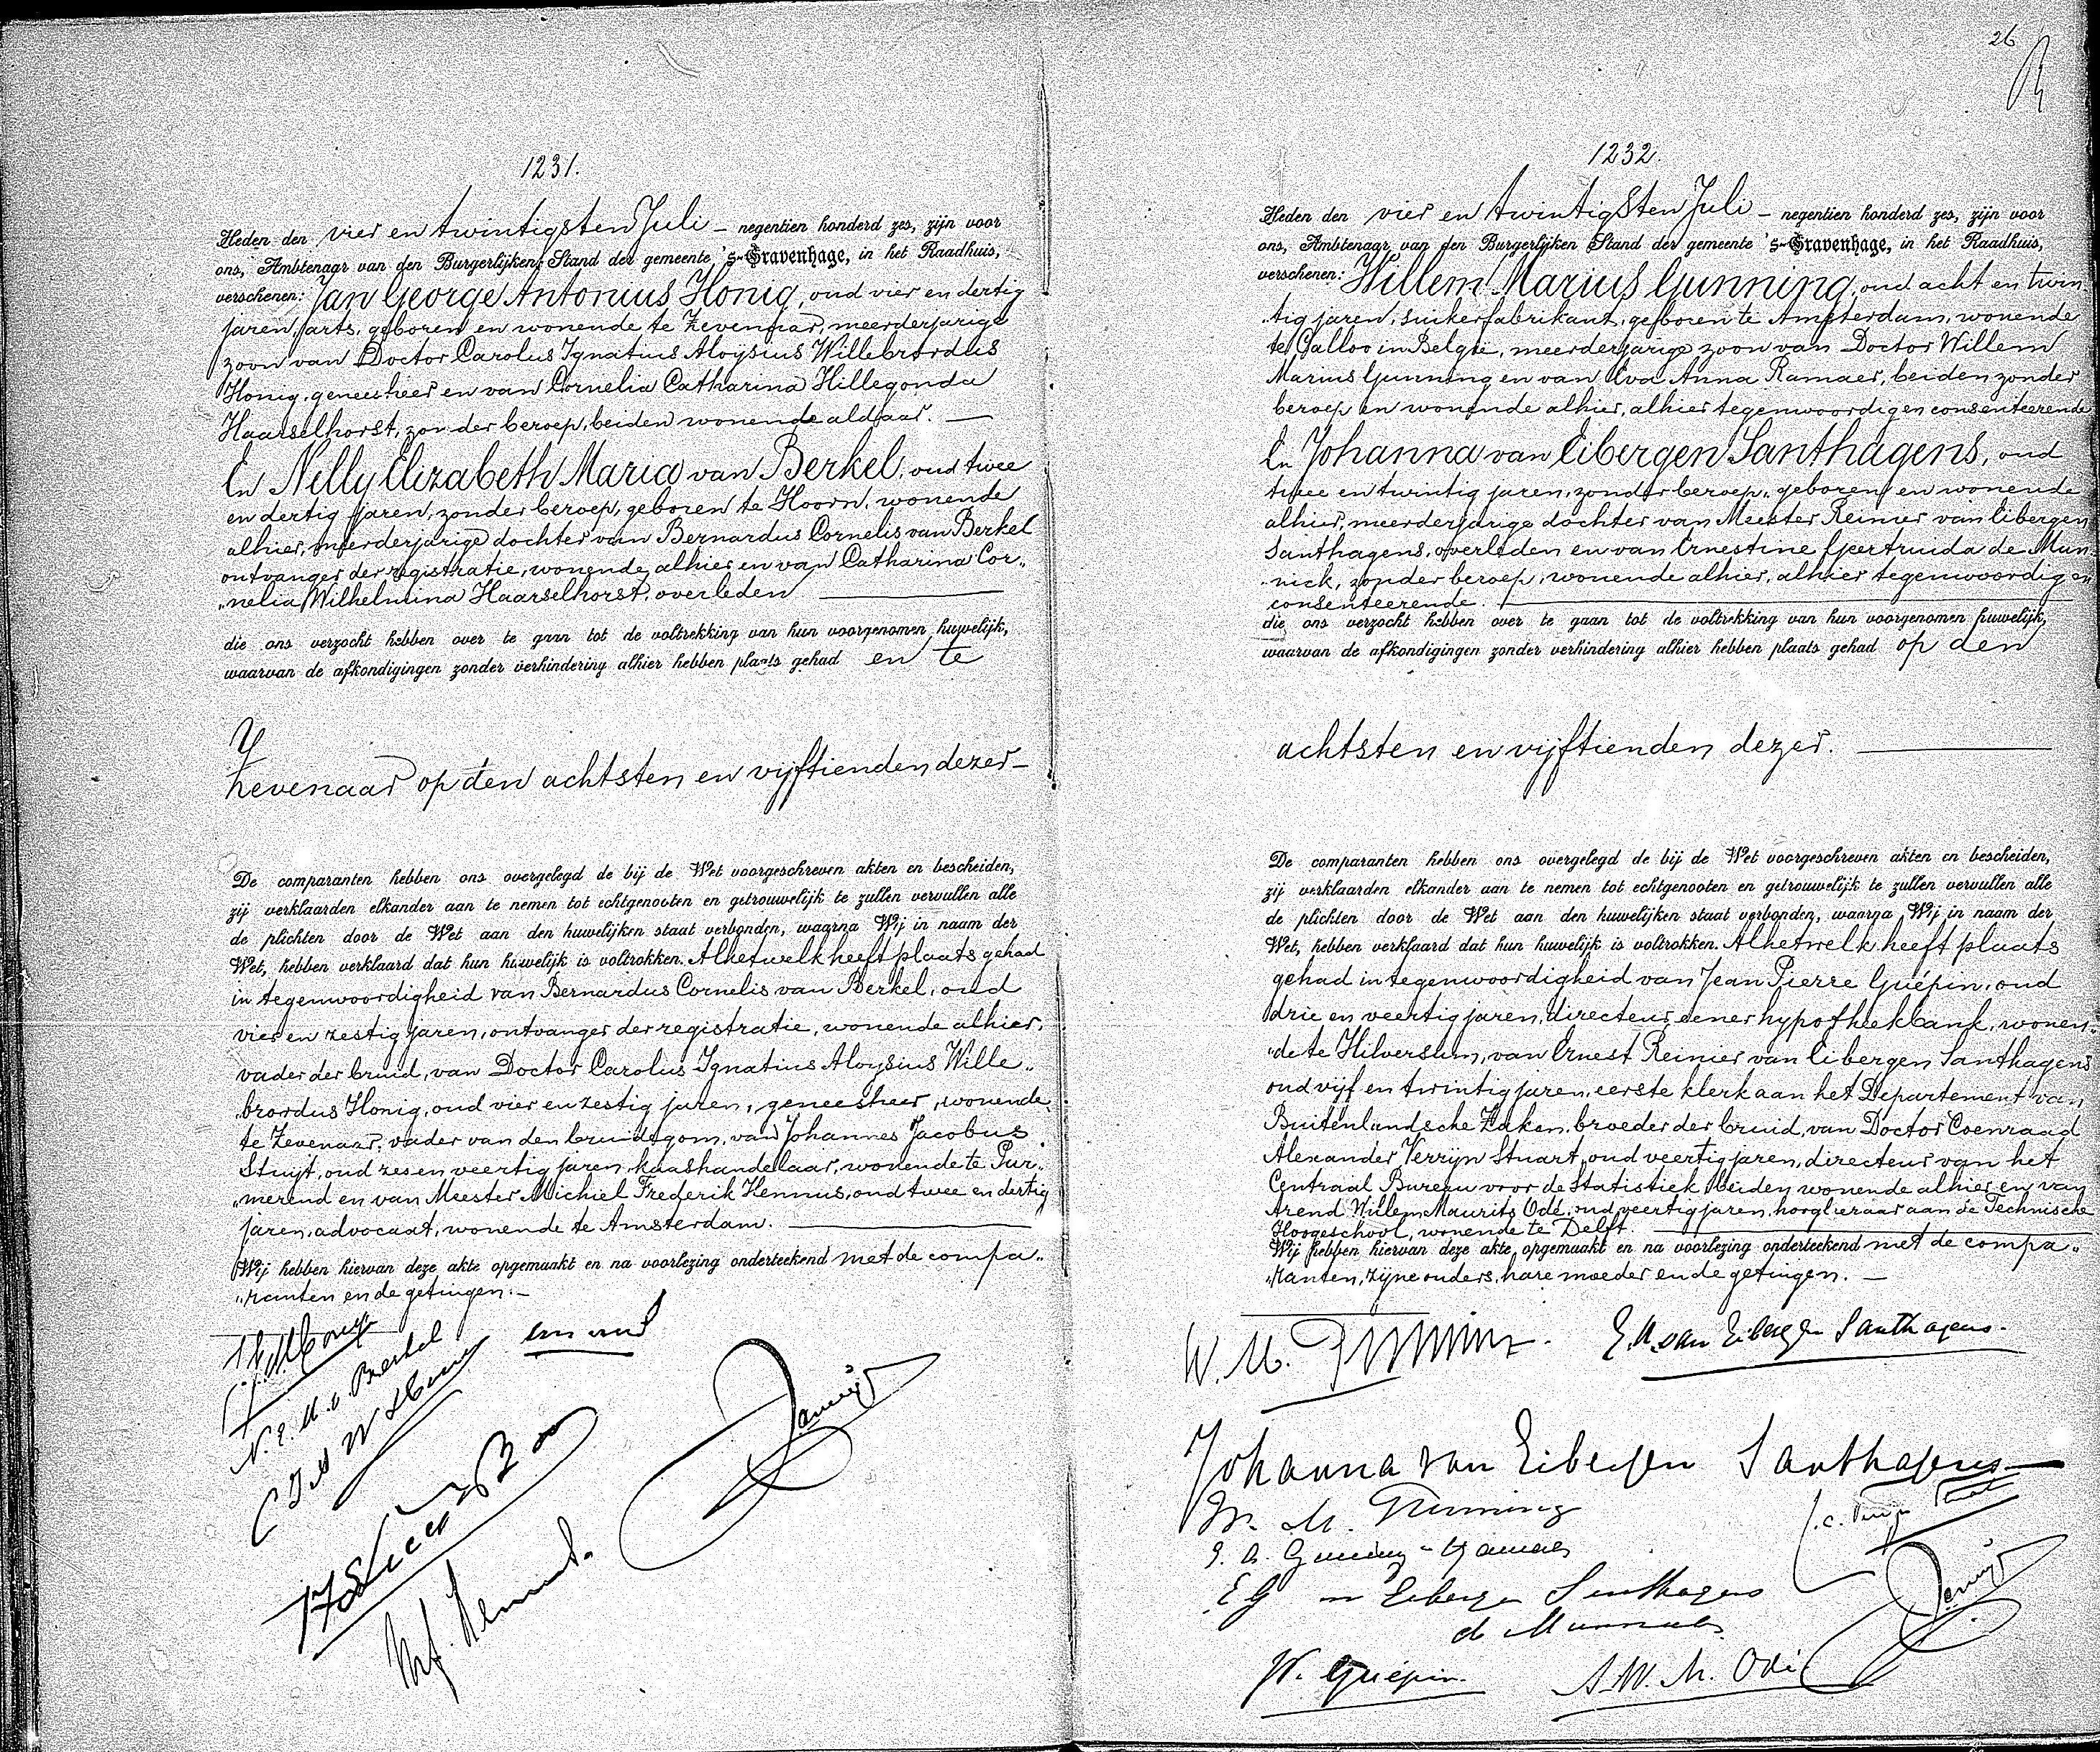 1231.
Heden den vier en twintigsten Juli — negentien honderd zes, zijn voor
ons, Ambtenaar van den Burgerlijken Stand der gemeente 's-Gravenhage, in het Raadhuis,
verschenen: Jan George Antonius Honig, oud vier en dertig
jaren, arts, geboren en wonende te Zevenaar, meerderjarige
zoon van Doctor Carolus Ignatius Aloÿsius Willebrordus
Honig, geneesheer en van Cornelia Catharina Hillegonda
Haarselhorst, zonder beroep, beiden wonende aldaar. —
En Nelly Elizabeth Maria van Berkel, oud twee
en dertig jaren, zonder beroep, geboren te Hoorn, wonende
alhier, meerderjarige dochter van Bernardus Cornelis van Berkel
ontvanger der registratie, wonende alhier en van Catharina Cor„
„nelia Wilhelmina Haarselhorst, overleden —
die ons verzocht hebben over te gaan tot de voltrekking van hun voorgenomen huwelijk,
waarvan de afkondigingen zonder verhindering alhier hebben plaats gehad en te
Zevenaar op den achtsten en vijftienden dezer —
De comparanten hebben ons overgelegd de bij de Wet voorgeschreven akten en bescheiden,
zij verklaarden elkander aan te nemen tot echtgenooten en getrouwelijk te zullen vervullen alle
de plichten door de Wet aan den huwelijken staat verbonden, waarna Wij in naam der
Wet, hebben verklaard dat hun huwelijk is voltrokken. Alhetwelk heeft plaats gehad
in tegenwoordigheid van Bernardus Cornelis van Berkel, oud
vier en zestig jaren, ontvanger der registratie, wonende alhier,
vader der bruid, van Doctor Carolus Ignatius Aloysius Wille„
„brordus Honig, oud vier en zestig jaren, geneesheer, wonende
te Zevenaar, vader van den bruidegom, van Johannes Jacobus
Stuijt, oud zes en veertig jaren, kaashandelaar, wonende te Pur„
„merend en van Meester Michiel Frederik Hennus, oud twee en dertig
jaren, advocaat, wonende te Amsterdam. —
Wij hebben hiervan deze akte opgemaakt en na voorlezing onderteekend met de compa„
„ranten en de getuigen. —
N. E. M. v. Berkel
26
1232.
Heden den vier en twintigsten Juli — negentien honderd zes, zijn voor
ons, Ambtenaar van den Burgerlijken Stand der gemeente 's-Gravenhage, in het Raadhuis,
verschenen: Willem Marius Gunning, oud acht en twin„
„tig jaren, suikerfabrikant, geboren te Amsterdam, wonende
te Calloo in België, meerderjarige zoon van Doctor Willem
Marius Gunning en van Eva Anna Ramaer, beiden zonder
beroep en wonende alhier, alhier tegenwoordig en consenteerende
En Johanna van Eibergen Santhagens, oud
twee en twintig jaren, zonder beroep, geboren en wonende
alhier, meerderjarige dochter van Meester Reinier van Eibergen
Santhagens, overleden en van Ernestine Geertruida de Mun„
„nick, zonder beroep, wonende alhier, alhier tegenwoordig en
consenteerende. —
die ons verzocht hebben over te gaan tot de voltrekking van hun voorgenomen huwelijk,
waarvan de afkondigingen zonder verhindering alhier hebben plaats gehad op den
achtsten en vijftienden dezer. —
De comparanten hebben ons overgelegd de bij de Wet voorgeschreven akten en bescheiden,
zij verklaarden elkander aan te nemen tot echtgenooten en getrouwelijk te zullen vervullen alle
de plichten door de Wet aan den huwelijken staat verbonden, waarna Wij in naam der
Wet, hebben verklaard dat hun huwelijk is voltrokken. Alhetwelk heeft plaats
gehad in tegenwoordigheid van Jean Pierre Guépin, oud
drie en veertig jaren, directeur eener hypotheekbank, wonen„
„de te Hilversum, van Ernest Reinier van Eibergen Santhagens
oud vijf en twintig jaren, eerste klerk aan het Departement van
Buitenlandsche Zaken, broeder der bruid, van Doctor Coenraad
Alexander Verrijn Stuart, oud veertig jaren, directeur van het
Centraal Bureau voor de Statistiek, beiden wonende alhier en van
Arend Willem Maurits Odé, oud veertig jaren, hoogleeraar aan de Technische
Hoogeschool, wonende te Delft. —
Wij hebben hiervan deze akte, opgemaakt en na voorlezing onderteekend met de compa„
„ranten, zijne ouders, hare moeder en de getuigen. —
W. M. Gunning.
E. R. van Eibergen Santhagens.
Johanna van Eibergen Santhagens
W. M. Gunning
E. A. Gunning - Ramaer
E G van Eibergen Santhagens
de Munnick
Guépin.
A. W. M. Odé